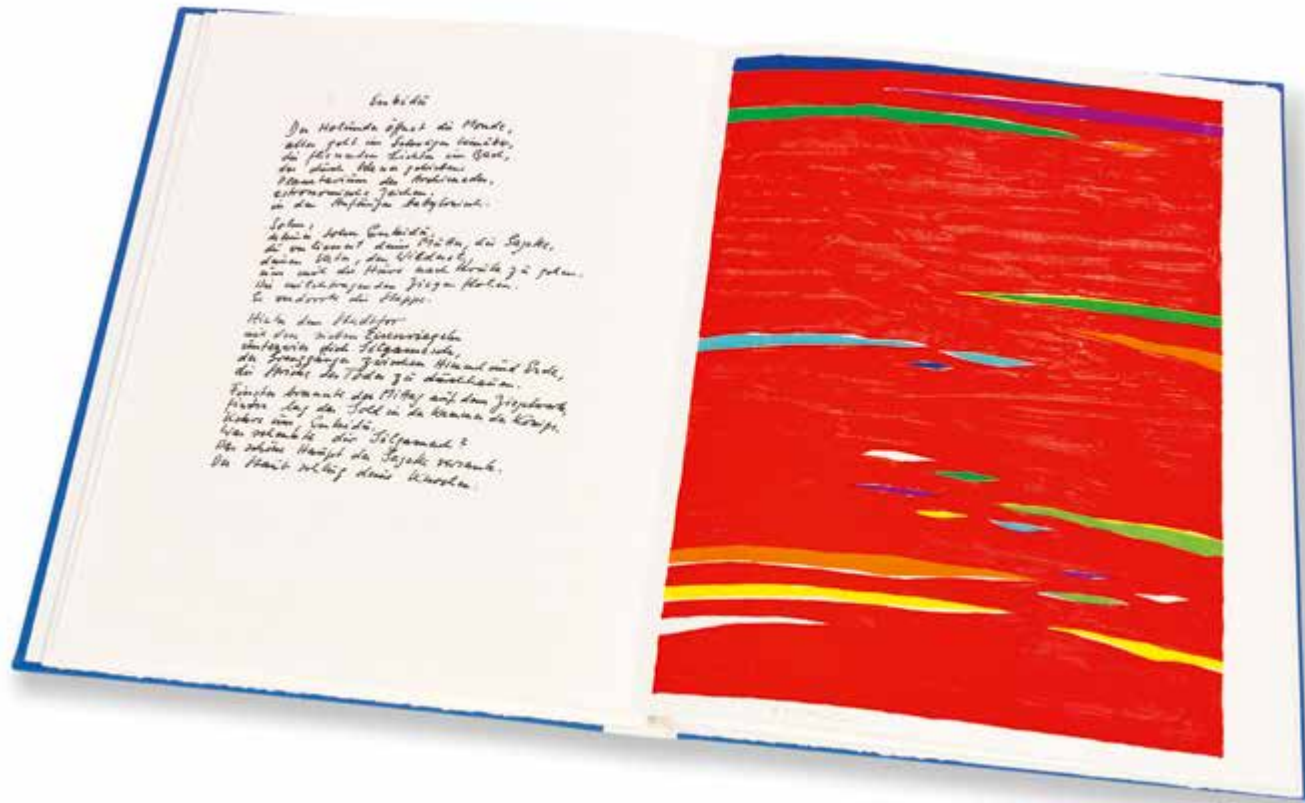 Enkidu
Der Holunder öffnet die Monde,
alles geht ins Schweigen hinüber,
die fliessenden Lichter im Bach,
das durch Wasser getriebene
Planetarium des Archimedes,
astronomische Zeichen,
in den Anfängen babylonisch.
Sohn,
kleiner Sohn Enkidu,
du verliessest deine Mutter, die Gazelle,
deinen Vater, den Wildesel,
um mit der Hure nach Uruk zu gehen.
Die milchtragenden Ziegen flohen.
Es verdorrte die Steppe.
Hinter dem Stadttor
mit den sieben Eisenriegeln
unterwies dich Gilgamesch,
der Grenzgänger zwischen Himmel und Erde,
die Stricke des Todes zu durchhauen.
Finster brannte der Mittag auf dem Ziegelwerk,
finster lag das Gold in der Kammer des Königs.
Kehre um, Enkidu.
Was schenkte dir Gilgamesch?
Das schöne Haupt der Gazelle versank.
Der Staub schlug deine Knochen.